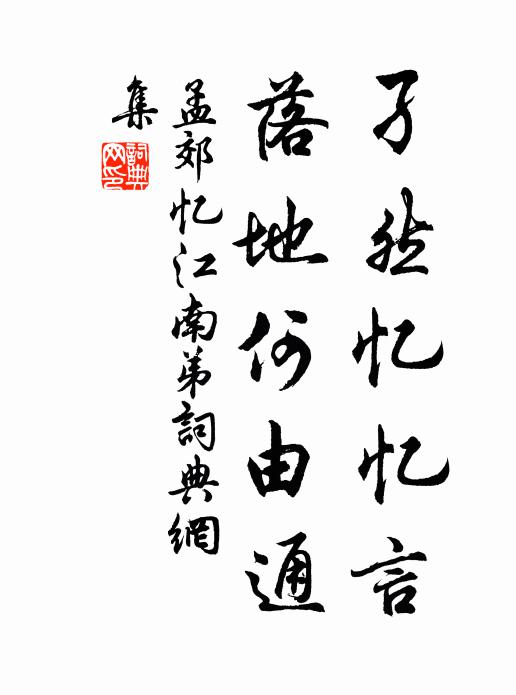 孑然忆忆言
落地何由通
孟郊忆江南弟詞典網
集
詞典网印